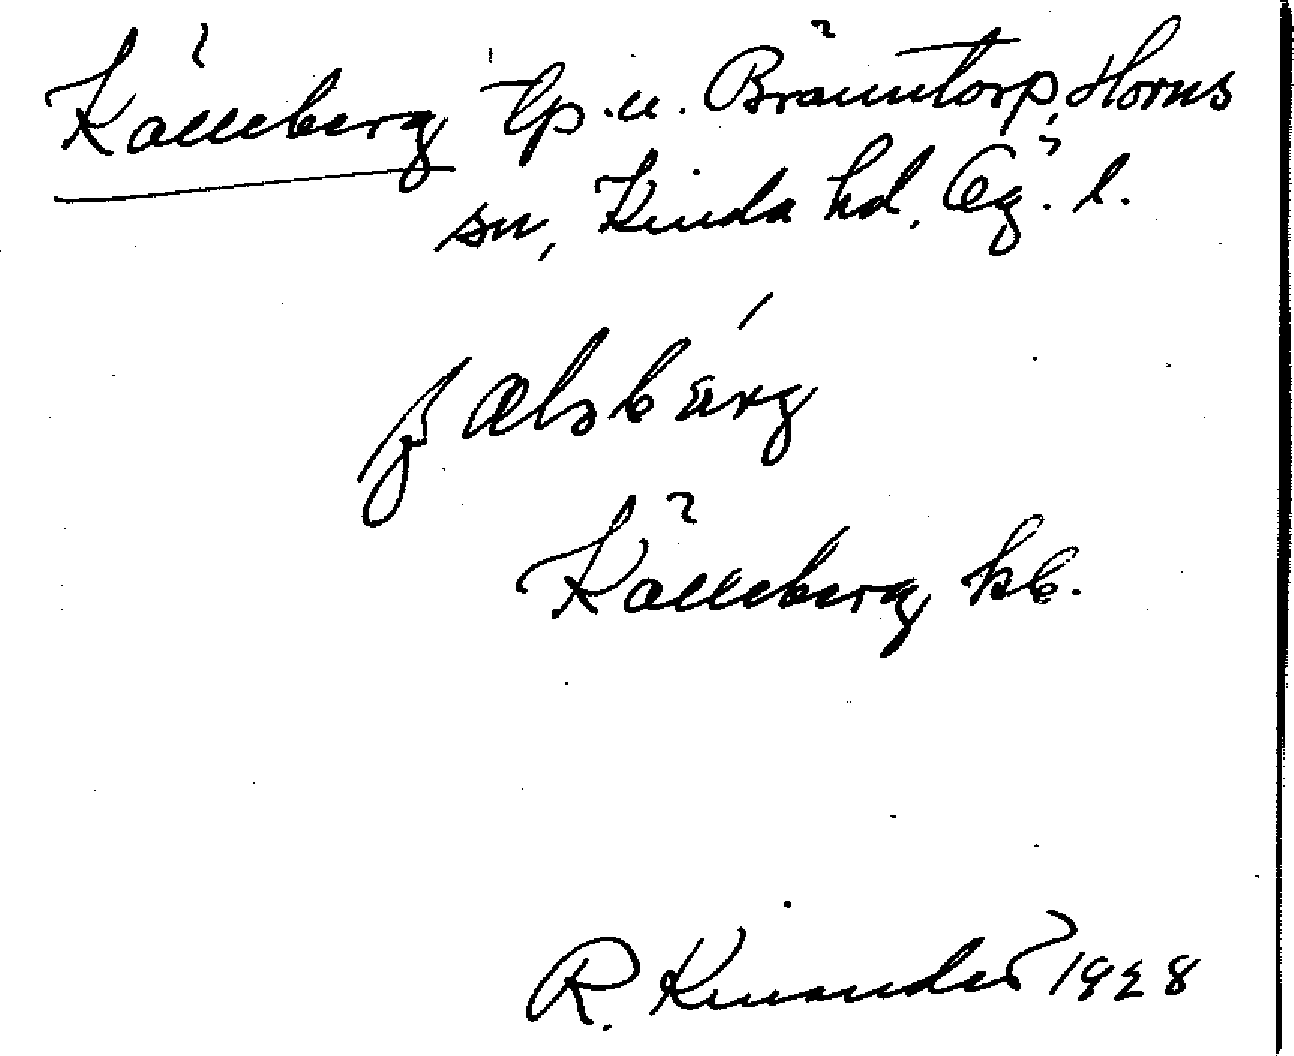 Källeberg tp. u. Bränntorp, Horns
sn, Kinda hd, Ög. l.
ɟælsbärg
Källeberg kb.
R. Kinander 1928